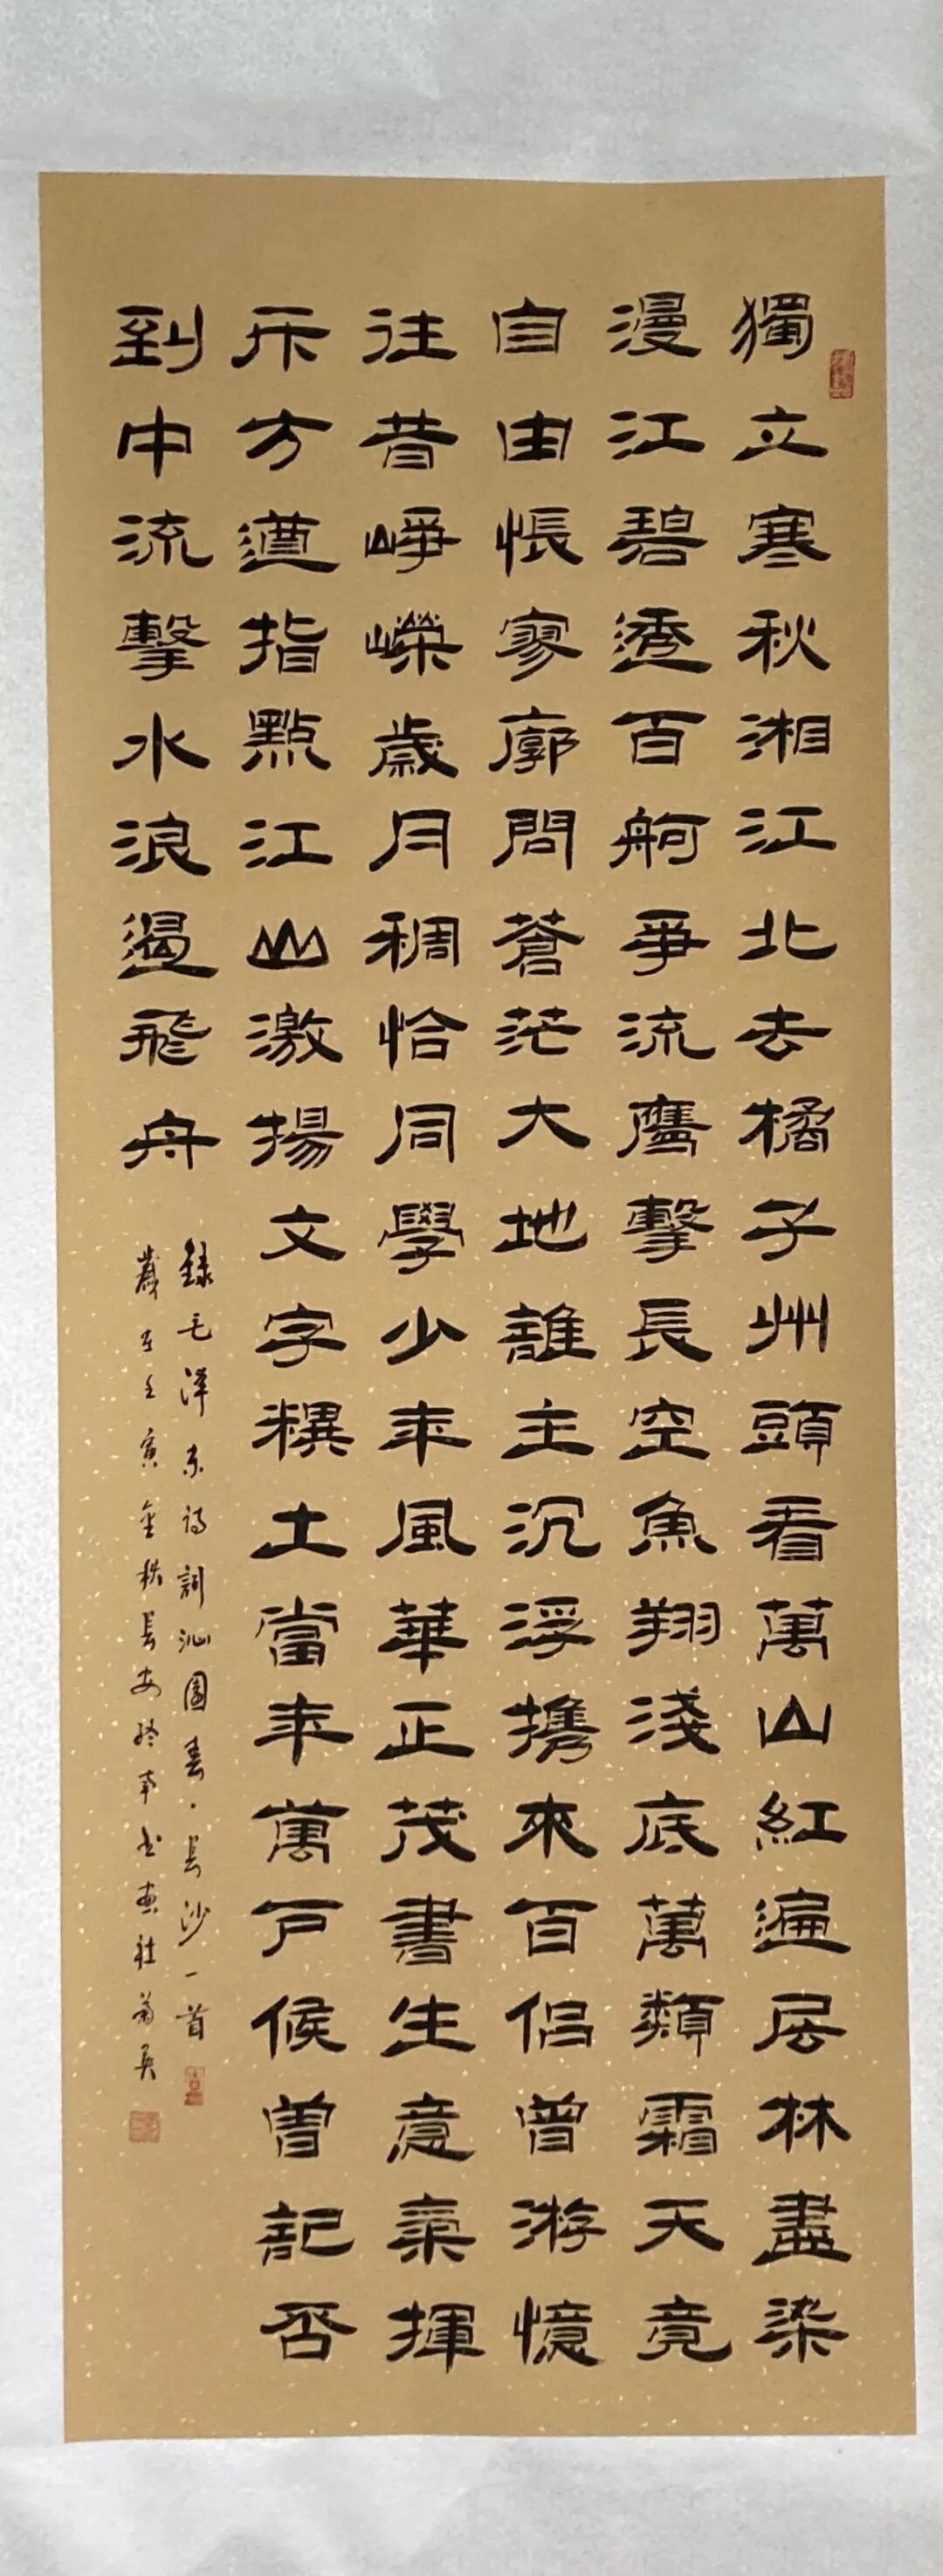 獨立寒秋湘江北去橘子州頭看萬山紅遍层林盡染
漫江碧透百舸爭流鹰擊長空魚翔淺底萬類霜天竞
自由悵寥廓問蒼茫大地誰主沉浮携來百侣曾游憶
往昔崢嶸歲月稠恰同學少年風華正茂書生意氣揮
斥方遒指點江山激揚文字糞土當年萬户侯曾記否
到中流擊水浪遏飛舟
録毛泽东诗詞沁園春·長沙一首
歲在壬寅金秋長安終南书画社